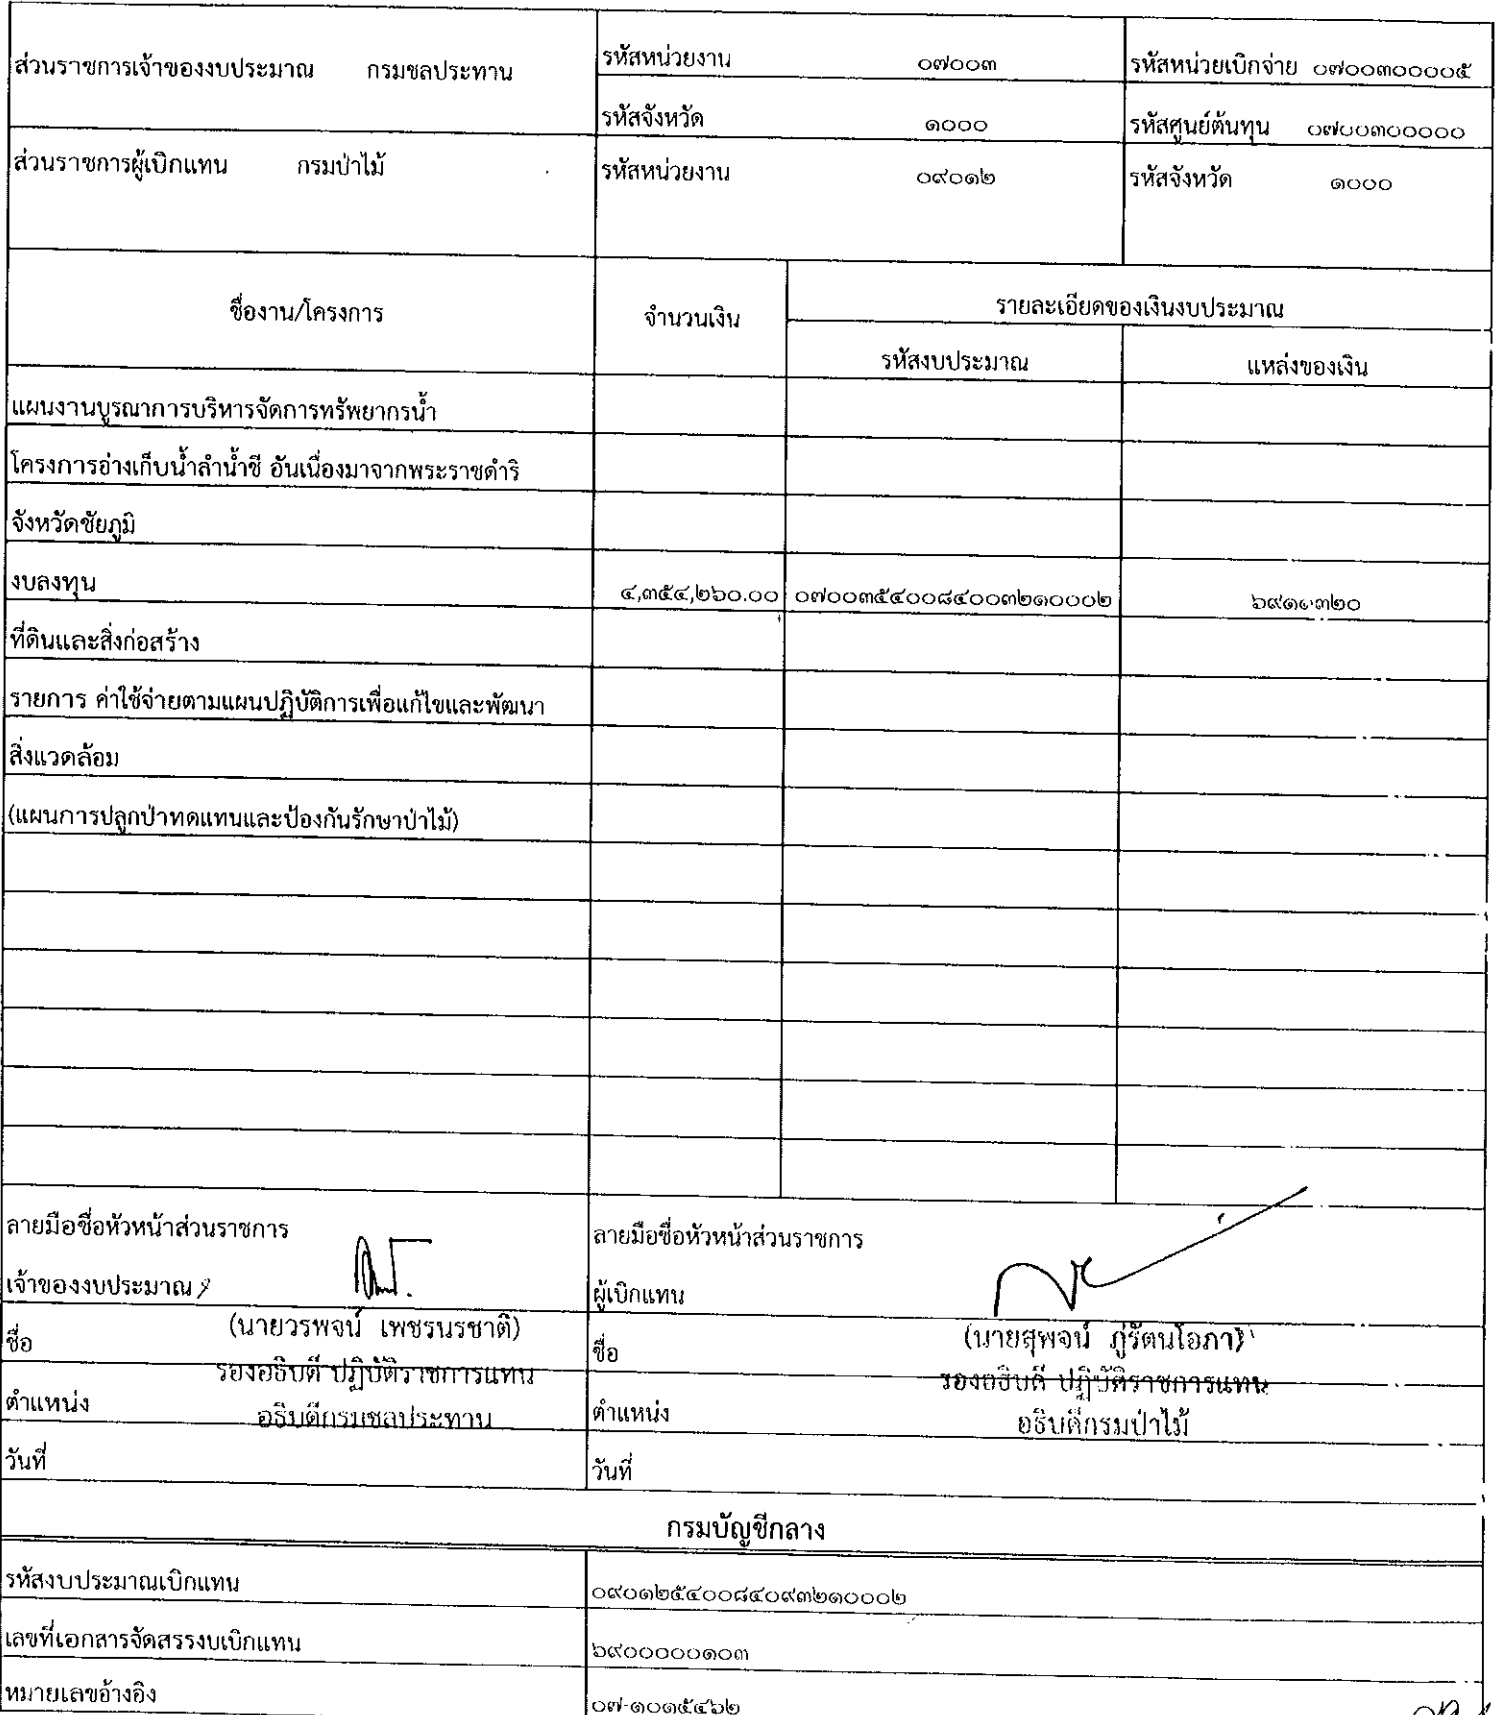 ส่วนราชการเจ้าของงบประมาณ กรมชลประทาน
รหัสหน่วยงาน ๐๗๐๐๓
รหัสหน่วยเบิกจ่าย ๐๗๐๐๓๐๐๐๐๕
รหัสจังหวัด ๑๐๐๐
รหัสศูนย์ต้นทุน ๐๗๐๐๓๐๐๐๐๐
ส่วนราชการผู้เบิกแทน กรมป่าไม้
รหัสหน่วยงาน ๐๙๐๑๒
รหัสจังหวัด ๑๐๐๐
ชื่องาน/โครงการ
จำนวนเงิน
รายละเอียดของเงินงบประมาณ
รหัสงบประมาณ
แหล่งของเงิน
แผนงานบูรณาการบริหารจัดการทรัพยากรน้ำ
โครงการอ่างเก็บน้ำลำน้ำชี อันเนื่องมาจากพระราชดำริ
จังหวัดชัยภูมิ
งบลงทุน ๔,๓๕๔,๒๖๐.๐๐ ๐๗๐๐๓๕๔๐๐๘๔๐๐๓๒๑๐๐๐๒
ที่ดินและสิ่งก่อสร้าง
รายการ ค่าใช้จ่ายตามแผนปฏิบัติการเพื่อแก้ไขและพัฒนา
สิ่งแวดล้อม
(แผนการปลูกป่าทดแทนและป้องกันรักษาป่าไม้)
ลายมือชื่อหัวหน้าส่วนราชการ
เจ้าของงบประมาณ
ชื่อ (นายวรพจน์ เพชรนรชาติ)
รองอธิบดี ปฏิบัติราชการแทน
ตำแหน่ง อธิบดีกรมชลประทาน
วันที่
ลายมือชื่อหัวหน้าส่วนราชการ
ผู้เบิกแทน
ชื่อ (นายสุพจน์ ภู่รัตนโอภา)
รองอธิบดี ปฏิบัติราชการแทน
ตำแหน่ง อธิบดีกรมป่าไม้
วันที่
กรมบัญชีกลาง
รหัสงบประมาณเบิกแทน ๐๙๐๑๒๕๔๐๐๘๔๐๙๓๒๑๐๐๐๒
เลขที่เอกสารจัดสรรงบเบิกแทน ๖๙๐๐๐๐๐๑๐๓
หมายเลขอ้างอิง ๐๗-๑๐๑๕๔๖๒